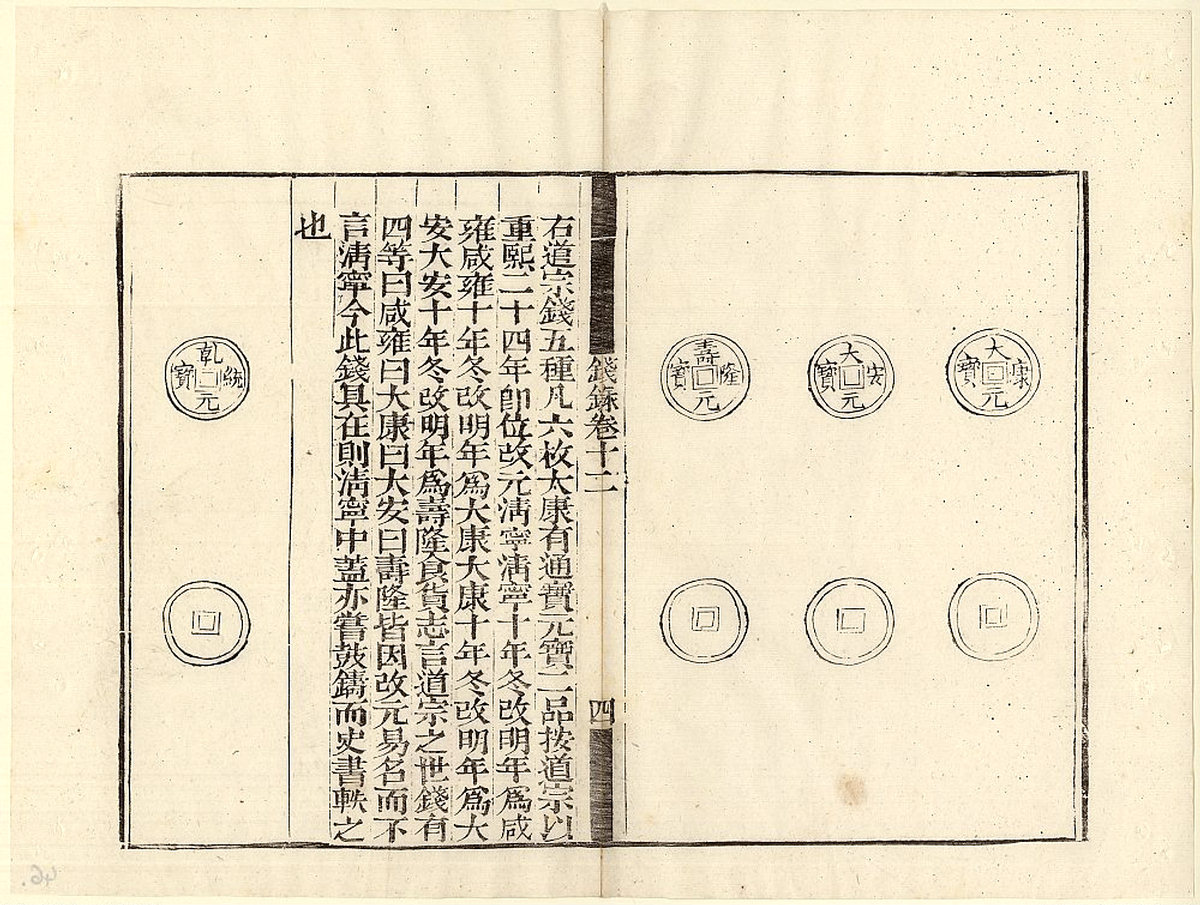 大康元寶
大安元寶
壽隆元寶
錢錄卷十二
四
右道宗錢五種凡六枚大康有通寶元寶二品按道宗以
重熙二十四年卽位改元淸寧淸寧十年冬改明年爲咸
雍咸雍十年冬改明年爲大康大康十年冬改明年爲大
安大安十年冬改明年爲壽隆食貨志言道宗之世錢有
四等曰咸雍曰大康曰大安曰壽隆皆因改元易名而不
言淸寧今此錢具在則淸寧中蓋亦嘗鼓鑄而史書軼之
也
乾統元寶